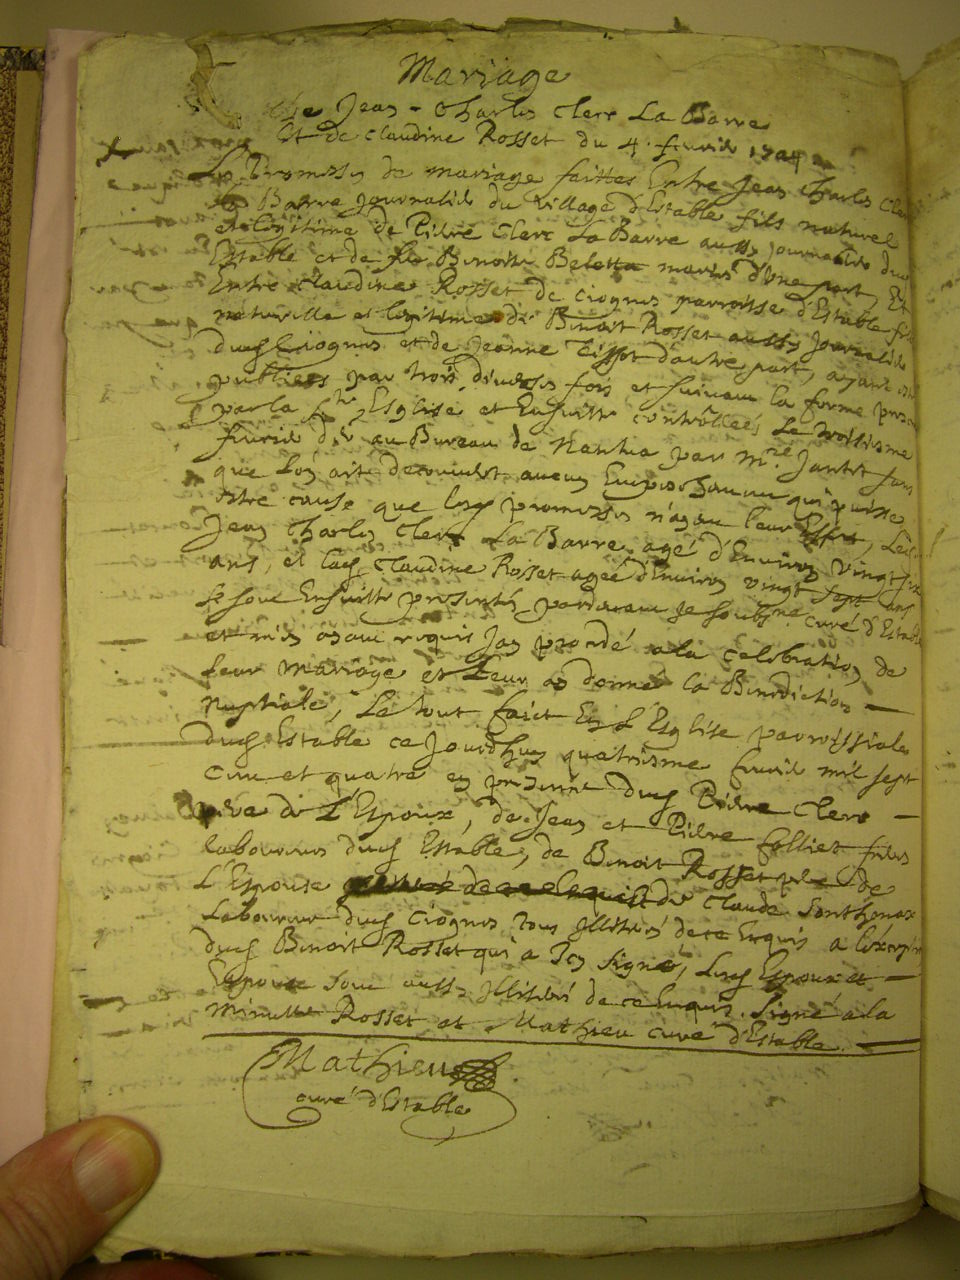 Mariage
de Jean-Charles Clerc La Barre
Et de Claudine Rosset du 4. fevrier 1704
Les Promesses de mariage faittes Entre Jean Charles Clerc
La Barre Journalier du village d'Estable fils naturel
et legitime de Pierre Clerc La Barre aussy journalier dud
Estable et de feu Benoitte Beletta mariés d'une part, Et
Entre Claudine Rosset de Ciognes parroisse d'Estable fille
naturelle et legitime de Benoit Rosset aussy Journalier
dud Ciognes et de Jeanne Tissot d'autre part, ayant esté
publiées par trois diverses fois et suivant la forme
par la Ste Esglise et Ensuitte controllées Le troisiesme
fevrier d. au Bureau de Nantua par Mre Jantet sans
que l'on ait decouvert aucun Empeschement qui puisse
estre cause que lesd promesses n'ayent leur Effet, Led
Jean Charles Clerc La Barre agé d'Environ vingt
ans, et lad Claudine Rosset agée d'Environ vingt sept ans
se sont Ensuitte presentés pardevant je soubsné curé d'Estable
et m'en ayant requis j'ay procedé a la celebration de
leur mariage et Leur ay donné la Benediction
nuptiale, Le tout faict En L'Esglise parroissiale
dud Estable ce Jourd'huy quatriesme fevrier mil sept
cent et quatre en presence dud Pierre Clerc
pere de L'Espoux, de Jean et Pierre folliet freres
laboureurs dud Estable, de Benoit Rosset pere de
L'Espouse de Claude Sonthonax
Laboureur dud Ciognes tous Illiterés de ce Enquis a l'exception
dud Benoit Rosset qui a Icy signé, Lesd Espoux et
Espouse sont aussy Illiterés de ce Enquis. Signé a la
minutte Rosset et Mathieu curé d'Estable.
Mathieu
curé d'Estable